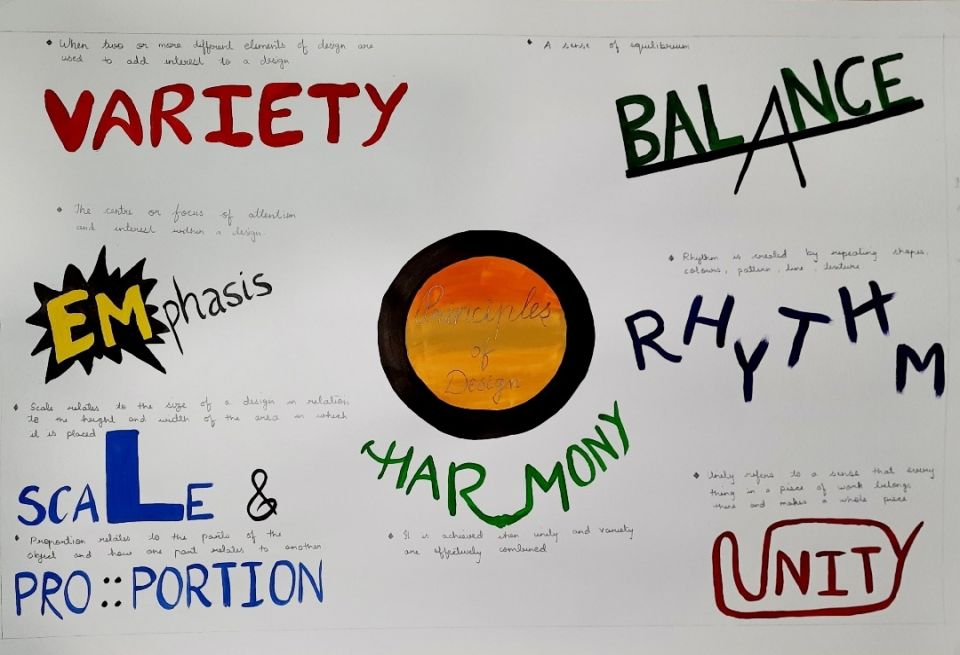 When two or more different elements of design are
used to add interest to a design
VARIETY
A sense of equilibrium
BALANCE
The centre or focus of attention
and interest within a design.
EMphasis
Principles
of
Design
Rhythm is created by repeating shapes,
colours, pattern, line, texture
RHYTHM
Scale relates to the size of a design in relation
to the height and width of the area in which
it is placed
SCALE &
Proportion relates to the parts of the
object and how one part relates to another
PRO::PORTION
HARMONY
It is achieved when unity and variety
are effectively combined
Unity refers to a sense that every
thing in a piece of work belongs
there and makes a whole piece
UNITY